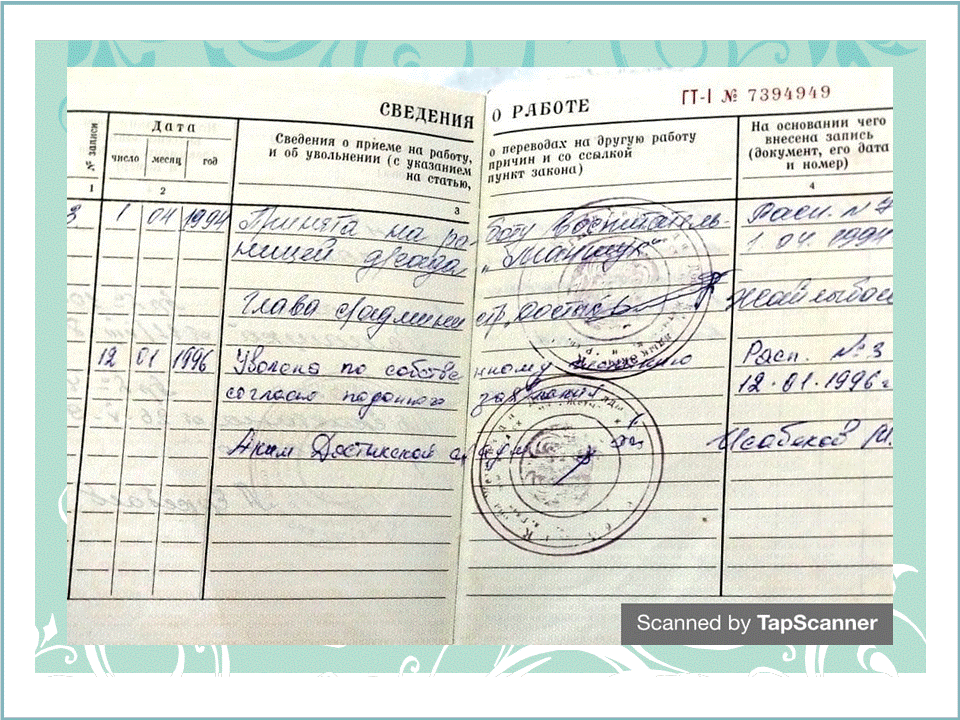 СВЕДЕНИЯ О РАБОТЕ
ГТ-I № 7394949
№ записи
Дата
число месяц год
Сведения о приеме на работу, о переводах на другую работу
и об увольнении (с указанием причин и со ссылкой
на статью, пункт закона)
На основании чего
внесена запись
(документ, его дата
и номер)
1 2 3 4
3. 1 04 1994 Принята на работу воспитатель- Расп. № 7
ницей д/сада 1.04.1994
Глава с/админист р.
12 01 1996 Уволена по собственному Расп. № 3
согласно поданного 12.01.1996 г
Аким Достыкской Исабеков
Scanned by TapScanner